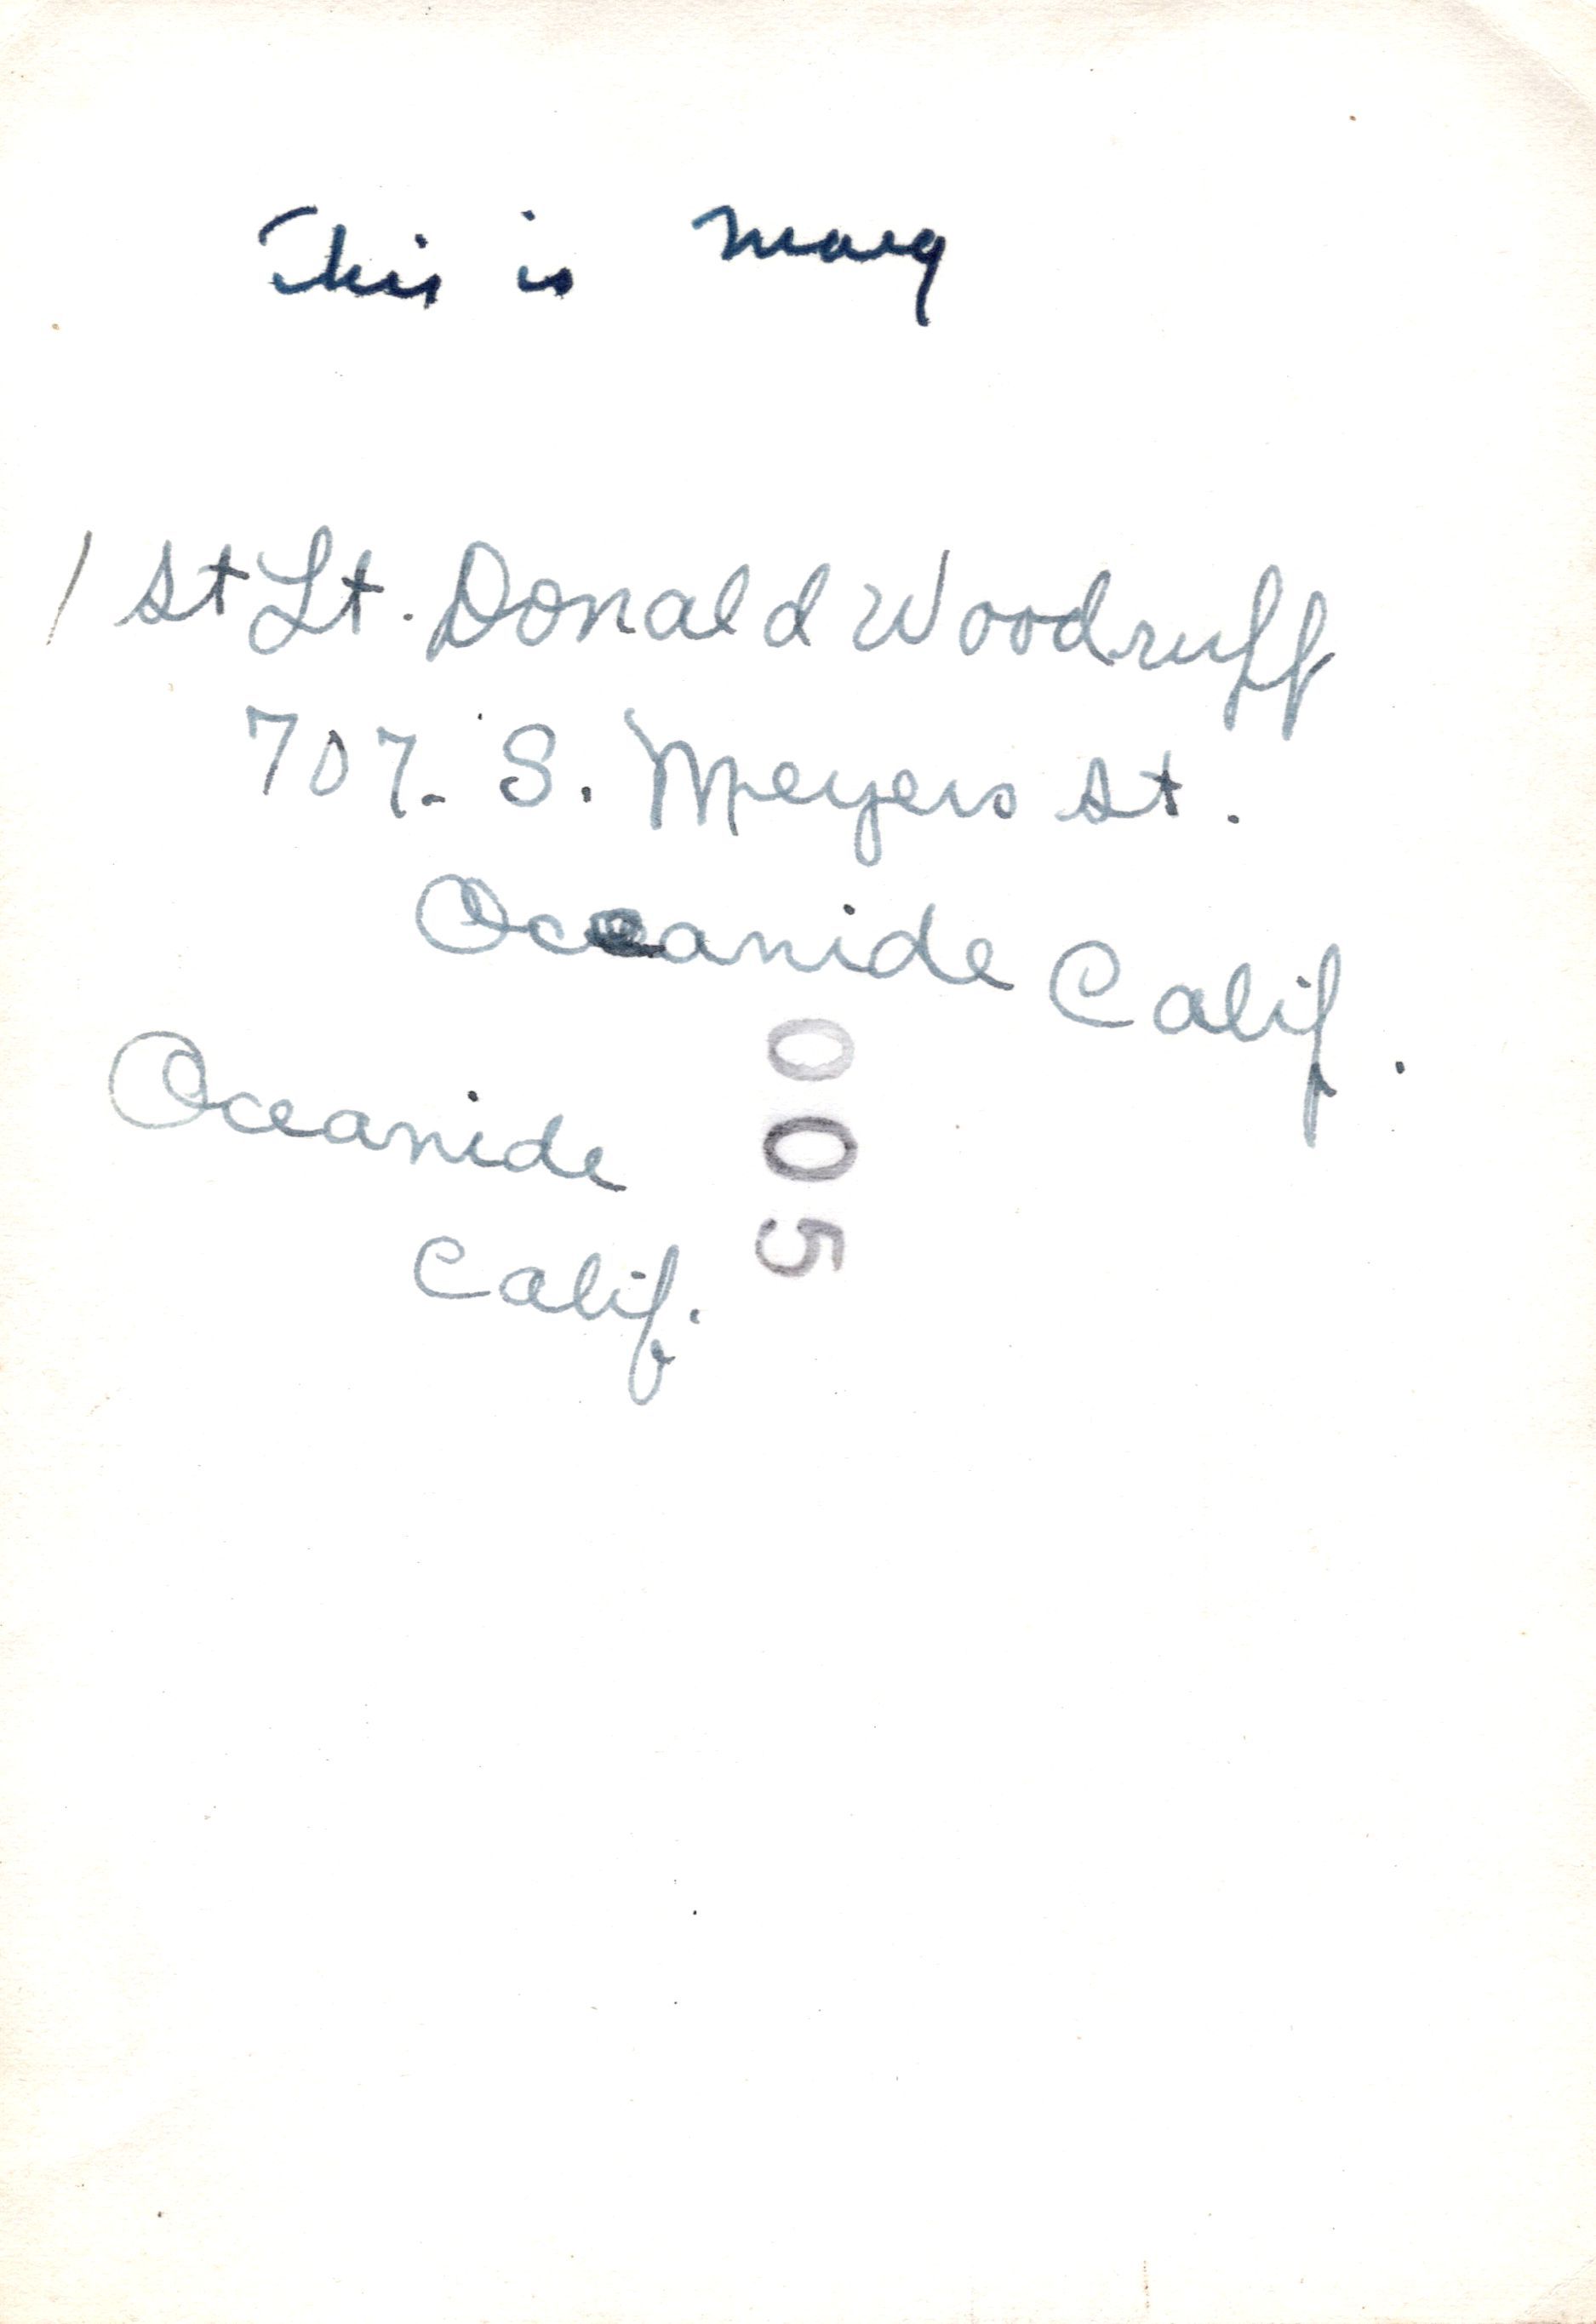 This is Mary
1st Lt. Donald Woodruff
707. S. Meyers st.
Oceanide Calif.
Oceanide
Calif.
005